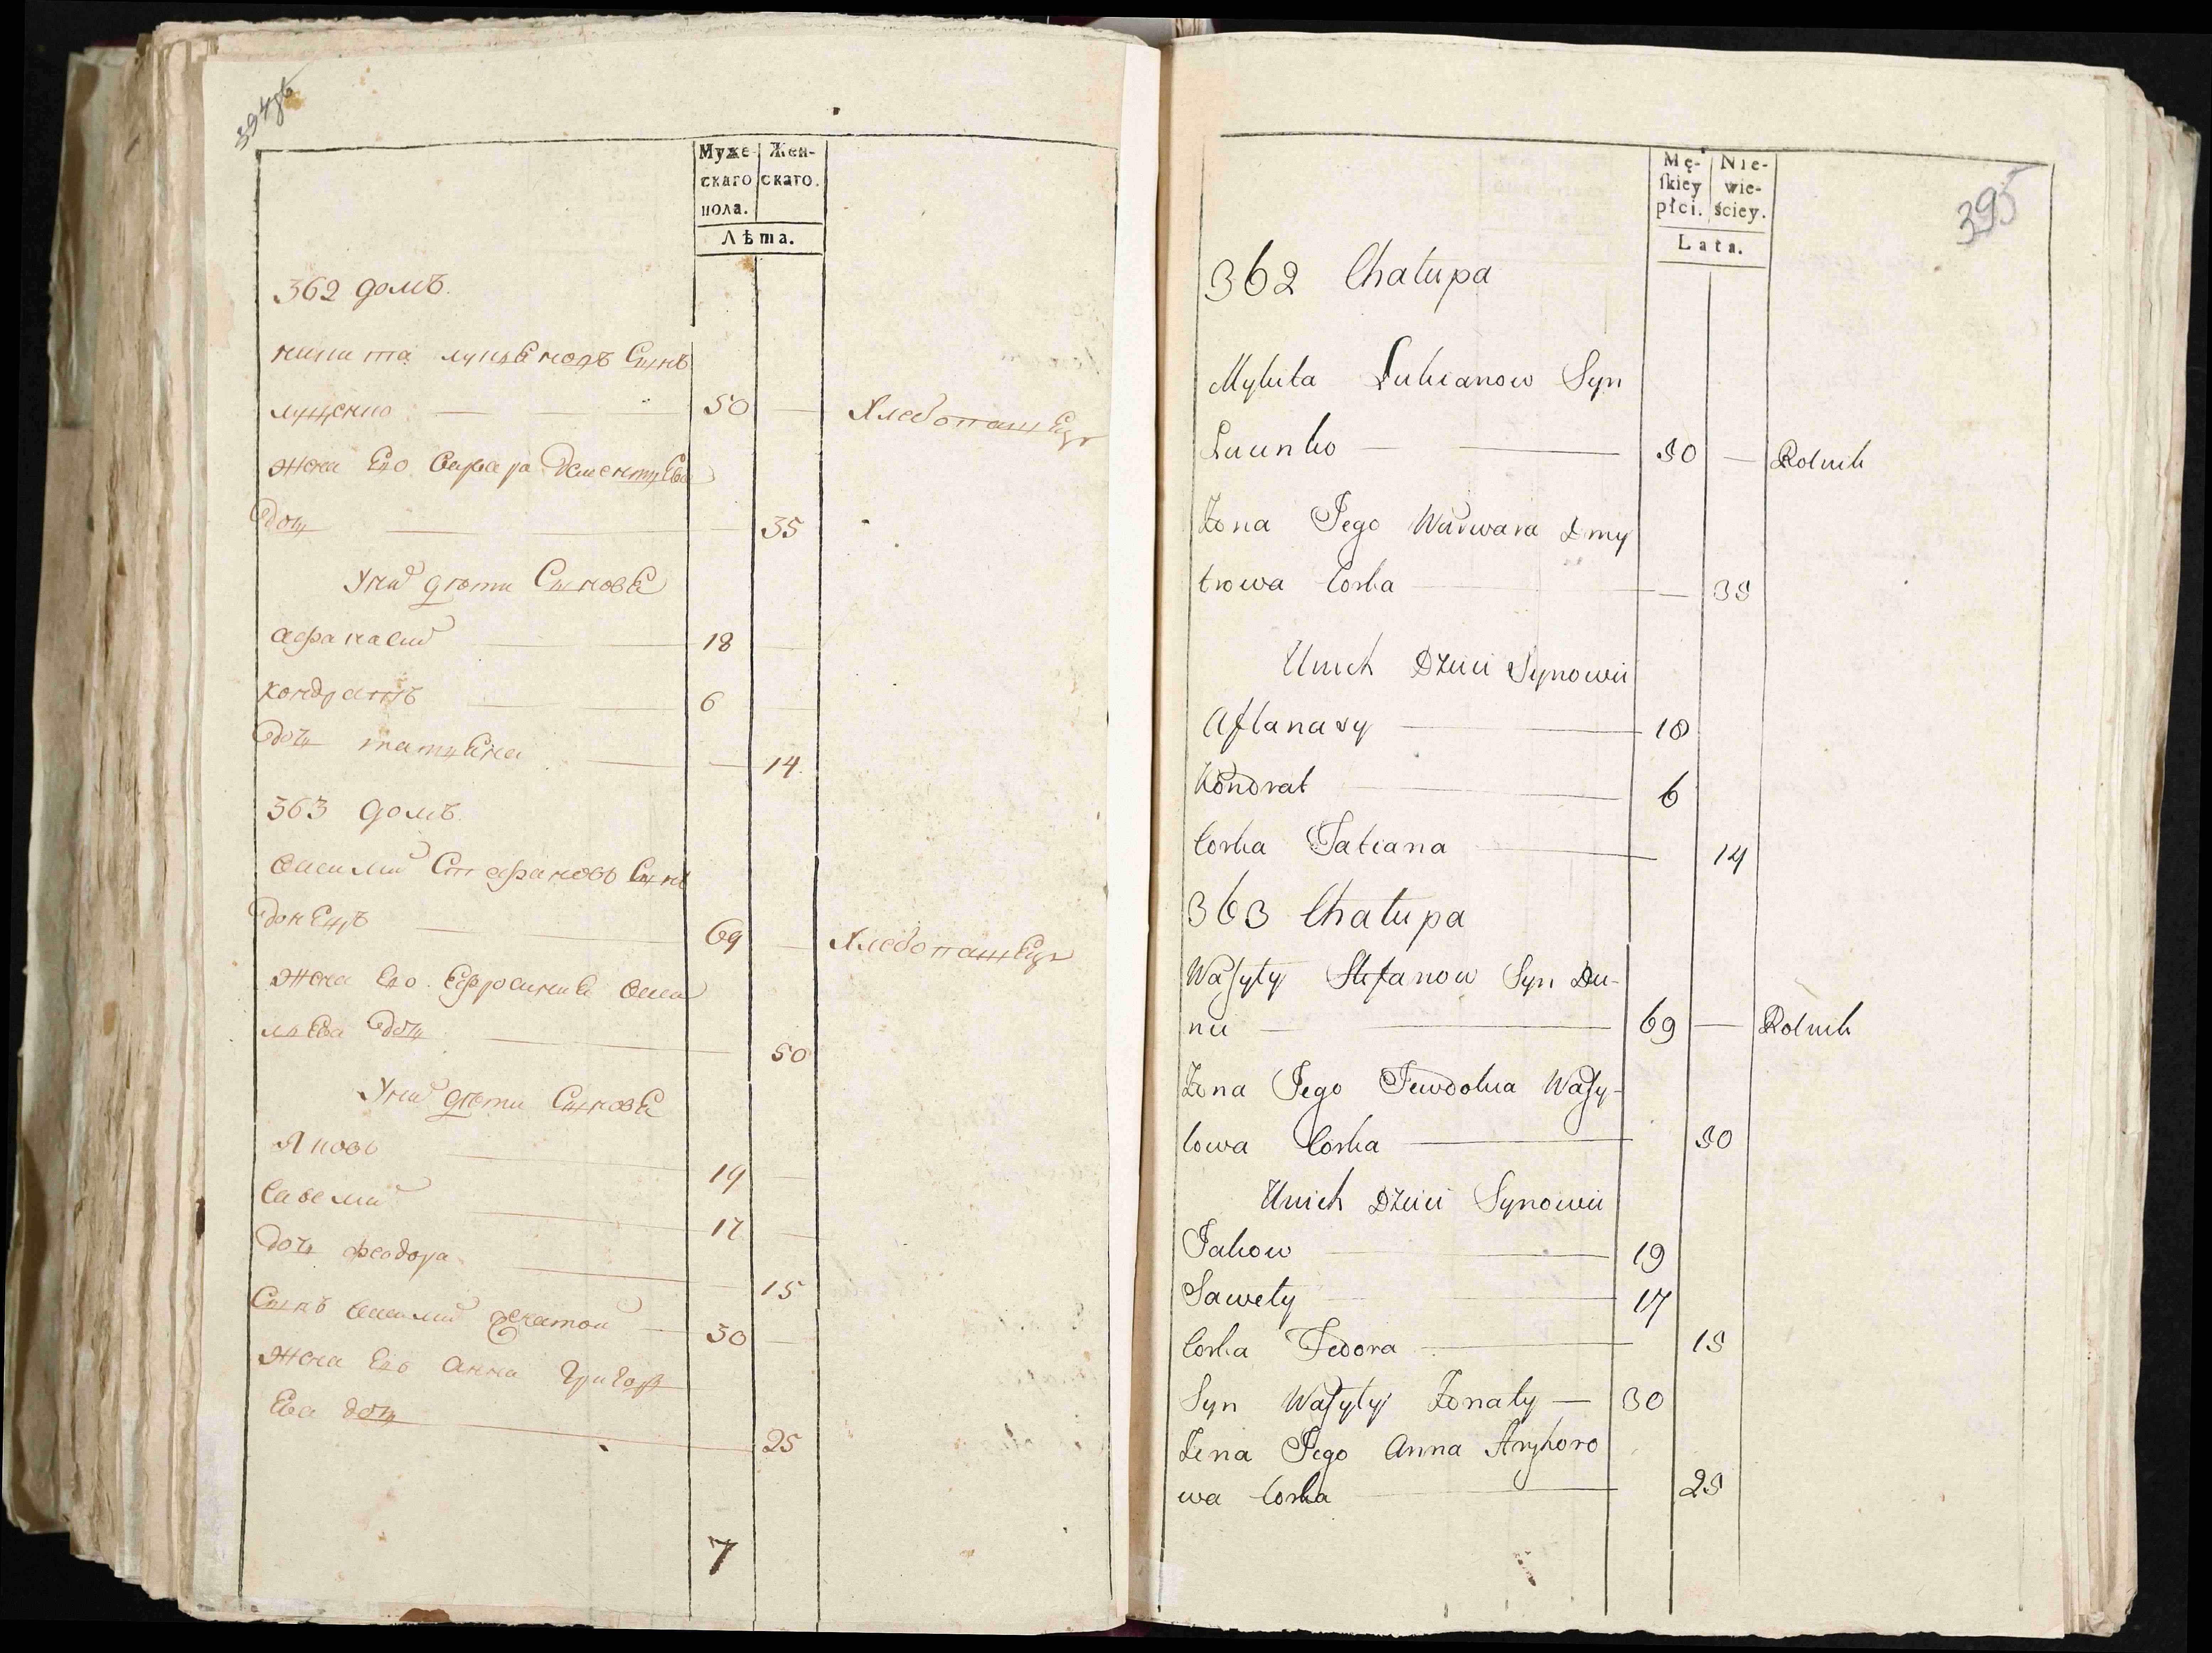 394об
Муже-
скаго
пола.
Жен-
скаго.
Лѣта.
362 домъ.
никита лукьяновъ Сынъ
луценко — 50 — Хлебопашецъ
жена Его варвара Дементьева
дочь — 35
У них дѣти Сыновья
афанасий — 18 —
кондратъ — 6 —
дочь татьяна — 14.
363 домъ.
василий Стефановъ Сынъ
донецъ — 69 — Хлебопашецъ
жена Его Ефросинья васи
льева дочь — 50
У них дѣти Сыновья
Яковъ — 19 —
савелий — 17 —
дочь феодора — 15
Сынъ василий женатой — 30 —
жена Его анна Григорь
ева дочь — 25
7
395
Mę-
skiey
płci.
Nie-
wie-
ściey.
Lata.
362 Chałupa
Mykita Lukianow Syn
Lucenko — 50 — Rolnik
Żona Jego Warwara Dmy
trowa Corka — 35
Unich Dzieci Synowii
Aftanasy — 18
Kondrat — 6
Corka Tatiana — 14
363 Chałupa
Wasyly Stefanow Syn Du-
nec — 69 — Rolnik
Żona Jego Jewdokia Wasy-
lowa Corka — 50
Unich Dzieci Synowii
Jakow — 19
Sawely — 17
Corka Fedora — 15
Syn Wasyly Żonaty — 30
Żena Jego Anna Hryhoro
wa Corka — 25